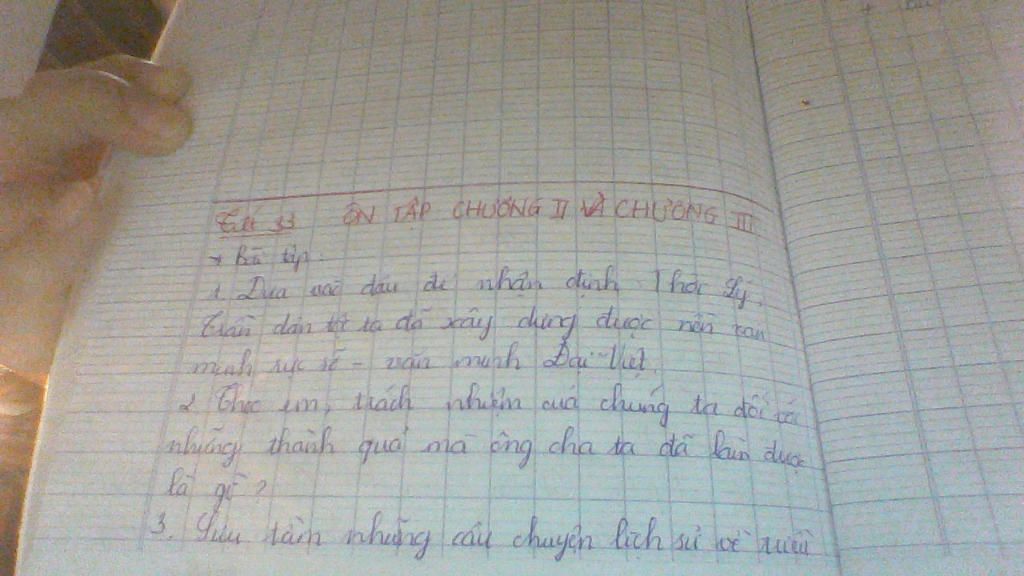 Tiết 33 ÔN TẬP CHƯƠNG II VÀ CHƯƠNG III
* Bài tập:
1. Dựa vào đâu để nhận định. Thời Lý,
Trần dân tột ta đã xây dựng được nền văn
minh rực rỡ - văn minh Đại Việt.
2. Theo em, trách nhiệm của chúng ta đối với
những thành quả mà ông cha ta đã làm được
là gì?
3. Sưu tầm những câu chuyện lịch sử về